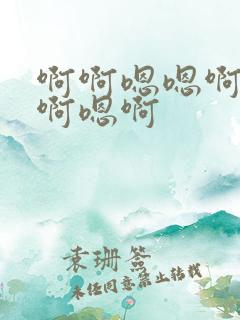 啊啊嗯嗯啊
啊嗯啊
袁珊签
未经同意禁止转载